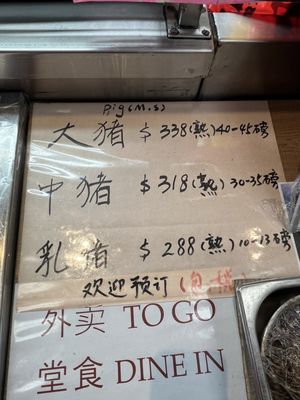 Pig(M.S)
大猪 $ 338(熟)40-45磅
中猪 $ 318(熟)30-35磅
乳猪 $ 288(熟)10-13磅
欢迎预订
外卖 TO GO
堂食 DINE IN